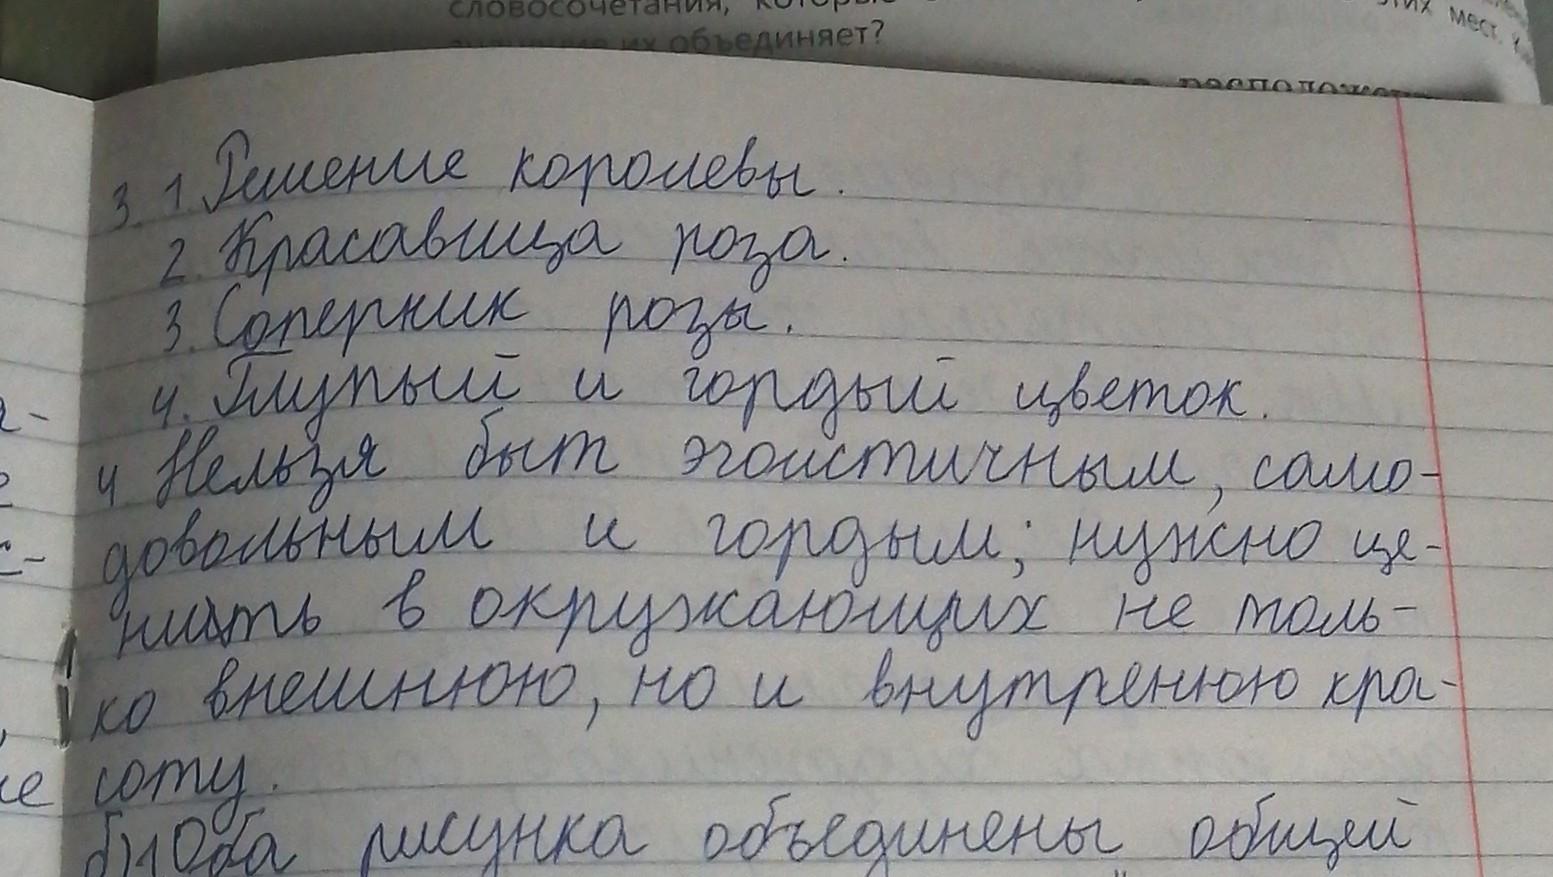 словосочетания,
их объединяет?
этих мест.
3. 1. Решение королевы.
2. Красавица роза.
3. Соперник розы.
4. Глупый и гордый цветок.
4 Нельзя быт эгоистичным, само-
довольным и гордым; нужно це-
нить в окружающих не толь-
ко внешнюю, но и внутренюю кра-
соту.
б) 1 Оба рисунка объединены общей